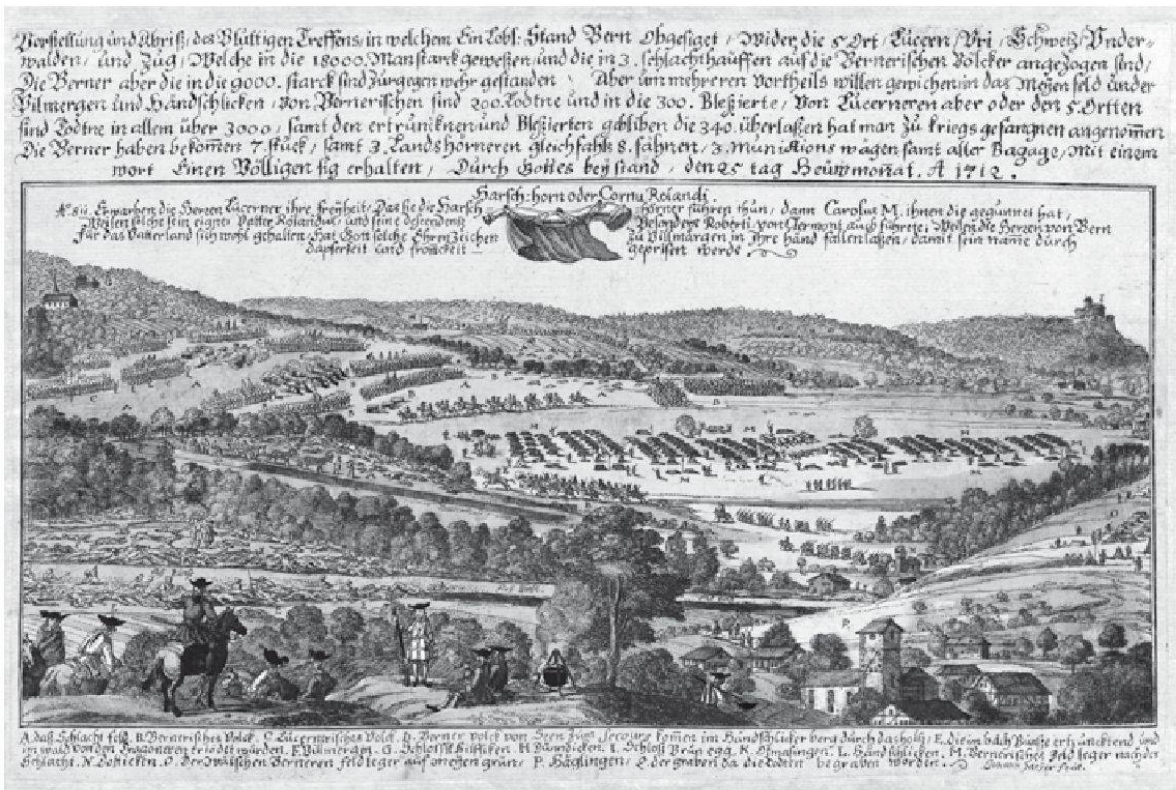 Vorstellung und Abriß, des Blůttigen Treffens, in welchem Ein Lobl: Stand Bern Obgesiget / Wider die 5 Ort / Lucern / Vri / Schweitz / Vnder-
walden / und Zug / Welche in die 18000. Man starck geweßen / und die in 3. schlachthauffen auf die Bernerischen Völcker angezogen sind /
Die Berner aber die in die 9000. starck sind zůr gegen wehr gestanden / Aber um mehreren Vortheils willen gewichen in das Meyen feld under
Vilmergen und Händschlicken / von Bernerischen sind 200. Todtne und in die 300. Bleßierte / Von Lucerneren aber oder den 5. Ortten
sind Todtne in allem über 3000 / samt den ertrunknen und Bleßierten gebliben die 340. überlaßen hat man zu kriegs gefangnen angenom̄en
Die Berner haben bekom̄en 7. stuck / samt 3. Lands hörneren gleichfahls 8. fahnen / 3. Munitions wägen samt aller Bagage / Mit einem
wort Einen Völligen sig erhalten / Durch Gottes beystand / den 25 tag Heüwmonat. A 1712.
Harsch-horn oder Cornu Rolandi.
Erwarben die Herren Lucerner ihre freiheit / Das sie die Harsch hörner führen thůn / dann Carolus M. ihnen die gegunnet hat /
Weilen solche sein eigner Vatter Rolandus / und seine Roberti von Clermont auch führete; Weilen die Herren von Bern
für das Vatterland sich wohl gehalten / Hat Gott solche Ehrn Zeichen zu Villmärgen in Ihre händ fallen laßen / damit sein name durch
dapferkeit und fromkeit geprisen werde
A. das Schlacht feld. B. Bernerisches Volck. C. Lucernerisches Volck. D. Berner volck von Seen zugs Secours kom̄en im Händschlicker berg durch das holtz. E. die im bach Buntze ertrünckend und
im wald von den Dragoneren ertödet würden. F. Vilmergen. G. Schloss Hilfiken. H. Dündicken. I. Schloss Brunegg. K. Otmasingen. L. Händschlicken. M. Bernerisches feld leger nach der
Schlacht. N. Dotticken. O. der Wälschen Berneren feld leger auf meyen grün / P. Häglingen / Q. der graben da die todten begraben worden.
Johann Meÿer fecit.